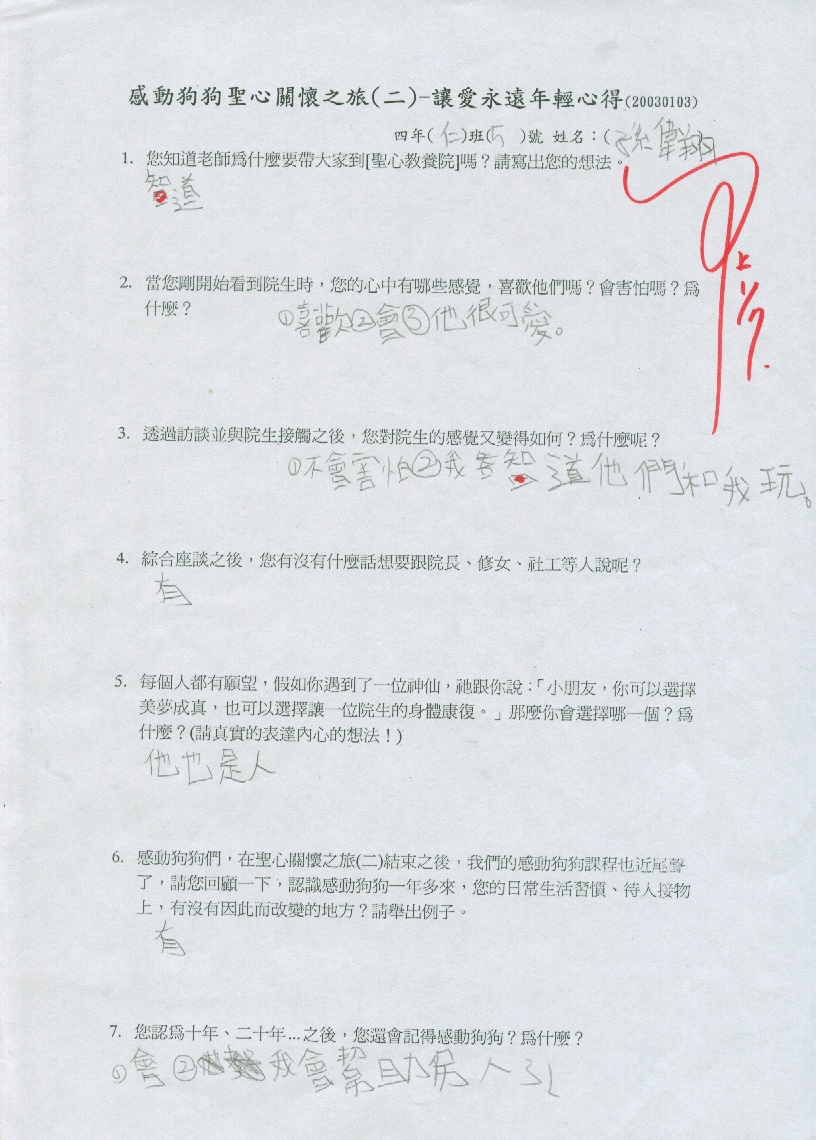 感動狗狗聖心關懷之旅(二)-讓愛永遠年輕心得(20030103)
四年(仁)班( )號 姓名：(孫偉翔
1. 您知道老師爲什麼要帶大家到[聖心教養院]嗎？請寫出您的想法。
知道
上
1/7.
2. 當您剛開始看到院生時，您的心中有哪些感覺，喜歡他們嗎？會害怕嗎？爲
什麼？
①喜歡②會③他很可愛。
3. 透過訪談並與院生接觸之後，您對院生的感覺又變得如何？爲什麼呢？
①不會害怕②我 知道他們和我玩。
4. 綜合座談之後，您有沒有什麼話想要跟院長、修女、社工等人說呢？
有
5. 每個人都有願望，假如你遇到了一位神仙，祂跟你說：「小朋友，你可以選擇
美夢成真，也可以選擇讓一位院生的身體康復。」那麼你會選擇哪一個？爲
什麼？(請真實的表達內心的想法！)
他也是人
6. 感動狗狗們，在聖心關懷之旅(二)結束之後，我們的感動狗狗課程也近尾聲
了，請您回顧一下，認識感動狗狗一年多來，您的日常生活習慣、待人接物
上，有沒有因此而改變的地方？請舉出例子。
有
7. 您認爲十年、二十年...之後，您還會記得感動狗狗？爲什麼？
①會②我會幫助 人